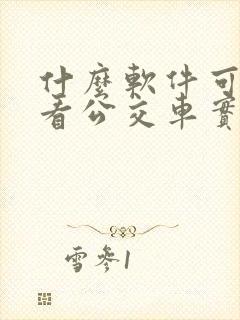 什麼軟件可
看公交車實
雪參1